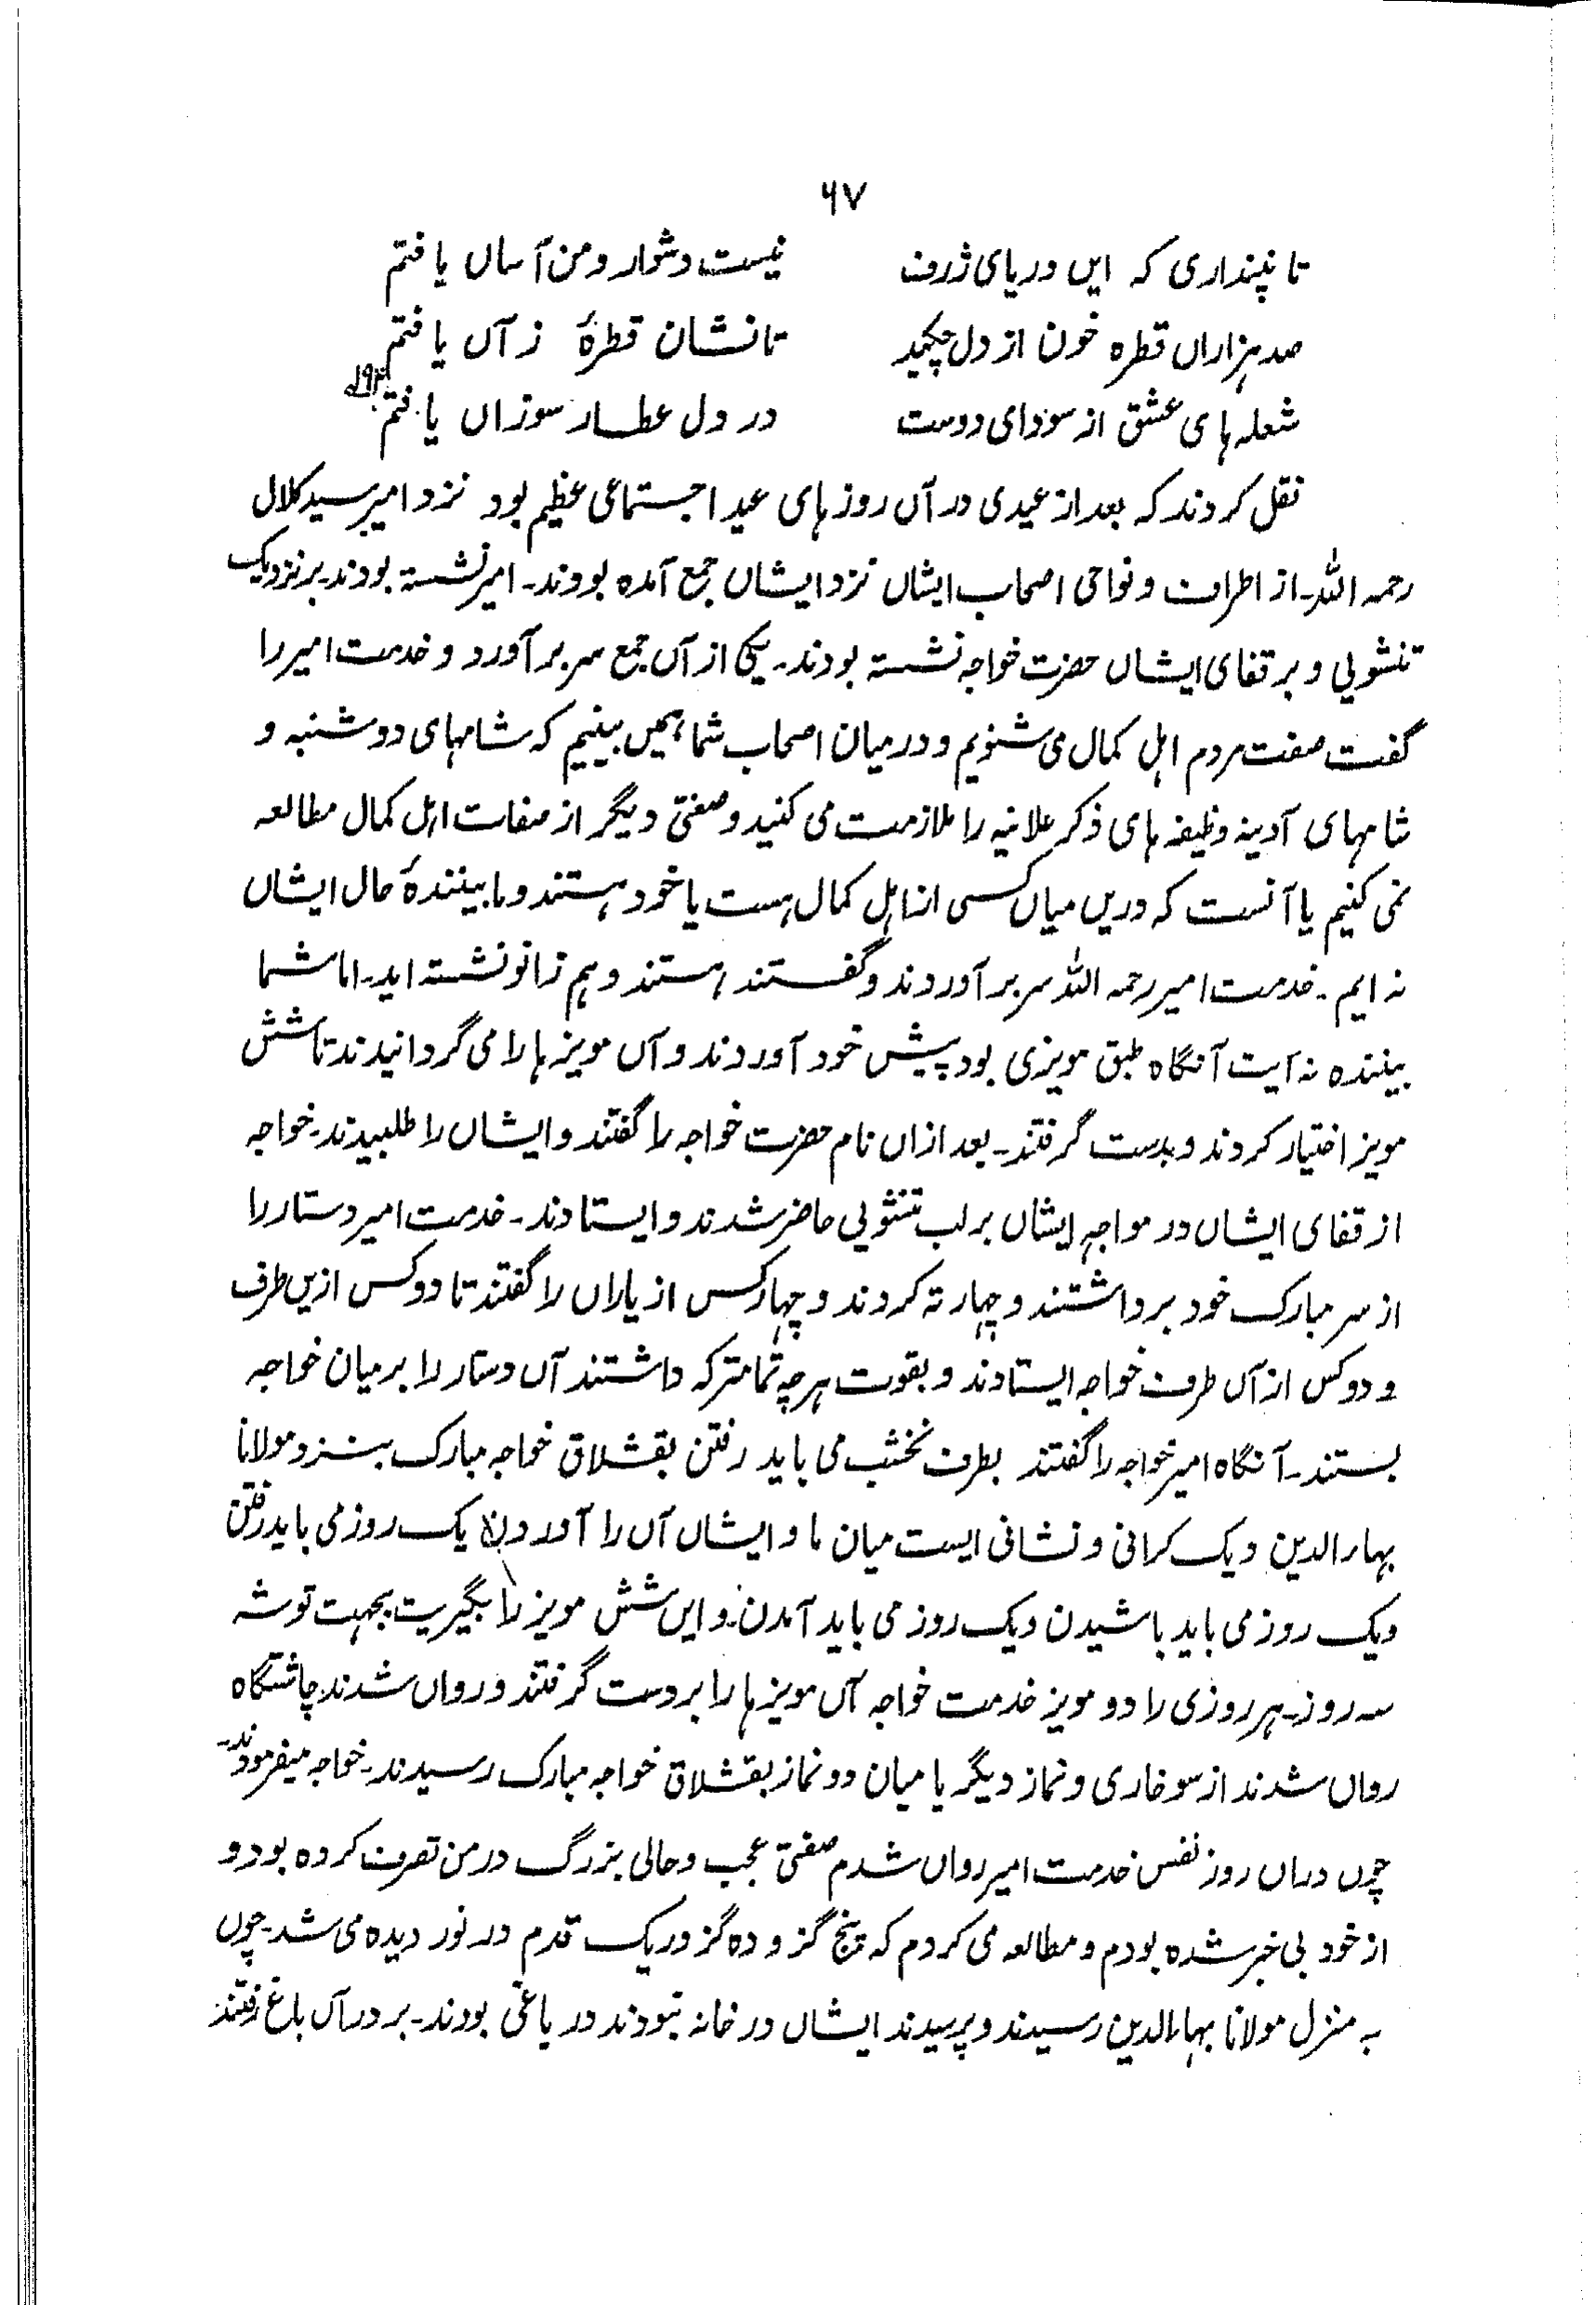 ۶۷
تا نپنداری که ایں دریای ژرف نیست دشوار و من آساں یافتم
صد ہزاراں قطره خون از دل چکید تا نشان قطرهٔ زآں یافتم
شعلہ ہای عشق از سودای دوست در دل عطار سوزاں یافتم
نقل کردند که بعد از عیدی در آں روز ہای عید اجتماعی عظیم بود نزد امیر سید کلال
رحمہ اللہ۔ از اطراف و نواحی اصحاب ایشاں نزد ایشاں جمع آمده بودند۔ امیر نشستہ بودند بر نزدیک
تنشویی و بر قفای ایشاں حضرت خواجہ نشستہ بودند۔ یکی از آں جمع سر بر آورد و خدمت امیر را
گفت صفت مردم اہل کمال می شنویم و در میان اصحاب شما ہمیں بینیم که شامہای دوشنبہ و
شامہای آدینہ وظیفہ ہای ذکر علانیہ را ملازمت می کنید و صفتی دیگر از صفات اہل کمال مطالعہ
نمی کنیم یا آنست که دریں میاں کسی از اہل کمال ہست یا خود ہستند و ما بینندهٔ حال ایشاں
نہ ایم۔ خدمت امیر رحمہ اللہ سر بر آوردند و گفتند ہستند و ہم زانو نشستہ اید۔ اما شما
بیننده نہ ایت آنگاه طبق مویزی بود پیش خود آوردند و آں مویز ہا را می گردانیدند تا شش
مویز اختیار کردند و بدست گرفتند۔ بعد ازاں نام حضرت خواجہ را گفتند و ایشاں را طلبیدند۔ خواجہ
از قفای ایشاں در مواجہ ایشاں بر لب تنشویی حاضر شدند و ایستادند۔ خدمت امیر دستار را
از سر مبارک خود برداشتند و چہار تہ کردند و چہار کس از یاراں را گفتند تا دو کس ازیں طرف
و دو کس از آں طرف خواجہ ایستادند و بقوت ہر چہ تمامتر که داشتند آں دستار را بر میان خواجہ
بستند۔ آنگاه امیر خواجہ را گفتند بطرف نخشب می باید رفتن بقشلاق خواجہ مبارک بنزد مولانا
بہاء الدین و یک کرانی و نشانی ایست میان ما و ایشاں آں را آوردن یک روز می باید رفتن
و یک روز می باید باشیدن و یک روز می باید آمدن۔ و ایں شش مویز را بگیریت بجہت توشہ
سہ روز۔ ہر روزی را دو مویز خدمت خواجہ آں مویز ہا را بر دست گرفتند و رواں شدند۔ چاشتگاه
رواں شدند از سوخاری و نماز دیگر یا میان دو نماز بقشلاق خواجہ مبارک رسیدند۔ خواجہ میفرمودند۔
چوں دراں روز نفس خدمت امیر رواں شدم صفتی عجب و حالی بزرگ در من تصرف کرده بود و
از خود بی خبر شده بودم و مطالعہ می کردم که پنج گز و ده گز در یک قدم در نور دیده می شد۔ چوں
بہ منزل مولانا بہاء الدین رسیدند و پرسیدند ایشاں در خانہ نبودند در باغی بودند۔ بر در آں باغ رفتند